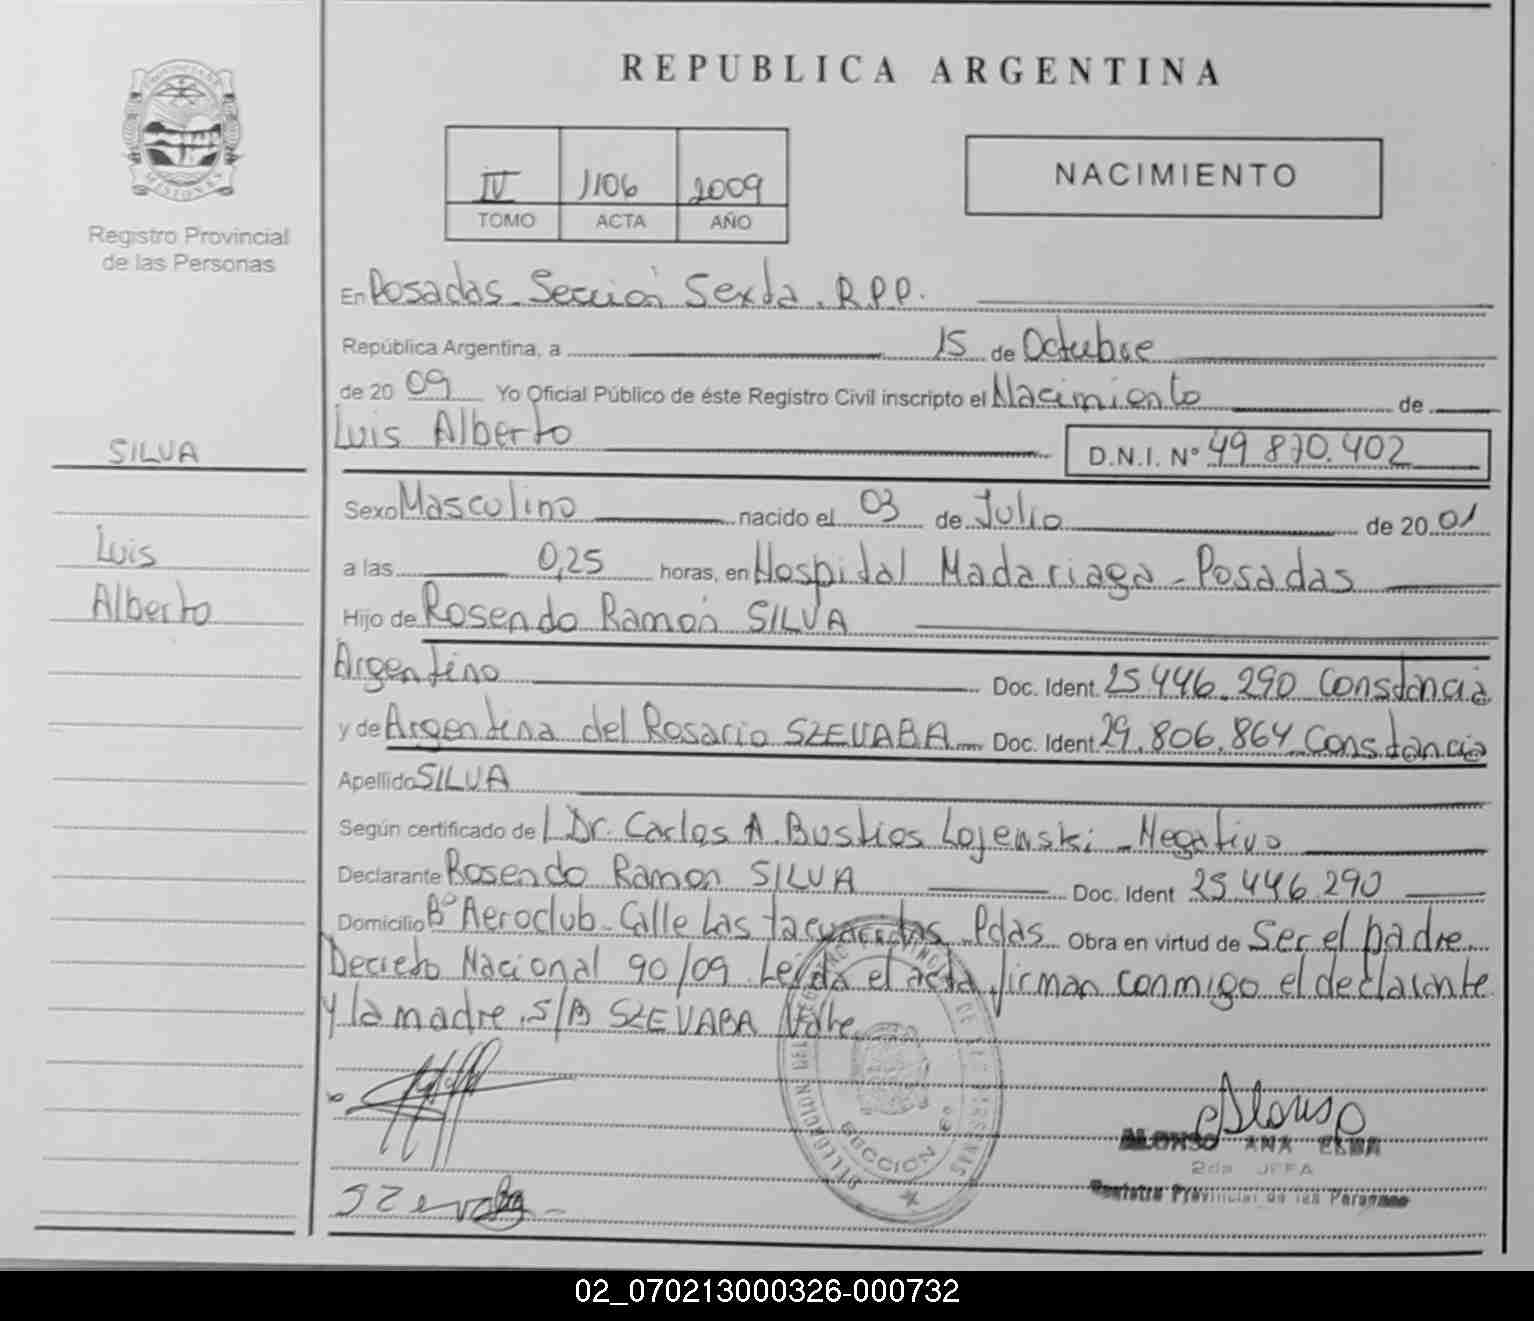 REPUBLICA ARGENTINA
MISIONES
Registro Provincial
de las Personas
IV 1106 2009
TOMO ACTA AÑO
NACIMIENTO
En Posadas - Sección Sexta. R.P.P.
República Argentina, a 15 de Octubre
de 2009 Yo Oficial Público de éste Registro Civil inscripto el Nacimiento de
Luis Alberto D.N.I. Nº 49 870.402
SILVA
Luis
Alberto
Sexo Masculino nacido el 03 de Julio de 2001
a las 0,25 horas, en Hospital Madariaga - Posadas
Hijo de Rosendo Ramón SILVA
Argentino Doc. Ident. 25.446.290 Constancia
y de Argentina del Rosario SZEVABA Doc. Ident. 29.806.864 Constancia
Apellido SILVA
Según certificado de Dr. Carlos A. Bustios Lojenski - Negativo
Declarante Rosendo Ramon SILVA Doc. Ident 25.446.290
Domicilio Bº Aeroclub - Calle Las tacuaritas Pdas Obra en virtud de Ser el padre
Decreto Nacional 90/09. Leida el acta firman conmigo el declarante
y la madre. S/B SZEVABA Vale
SECCION 6º
Szevaba
Alonso
ALONSO ANA ELBA
2da JEFA
Registro Provincial de las Personas
02_070213000326-000732